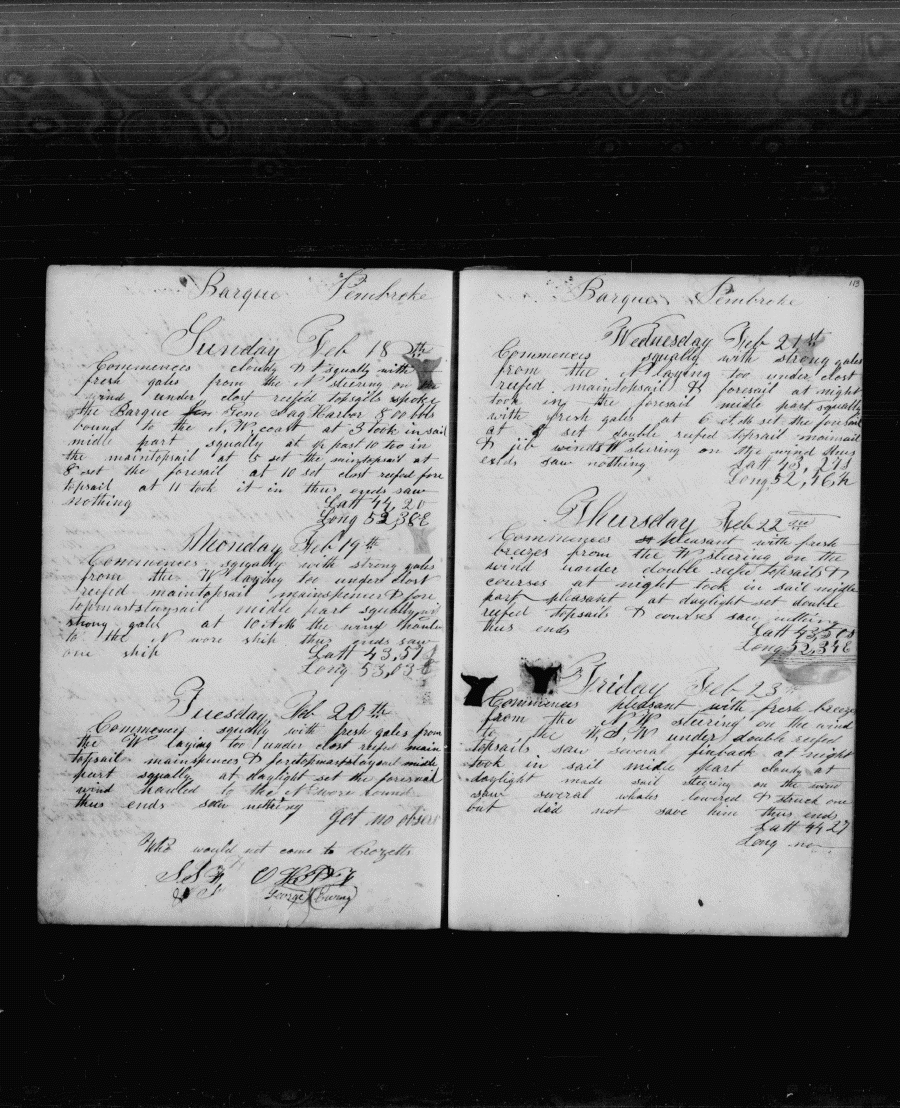 Barque Pembroke
Sunday Feb 18th
Commences cloudy & squally with
fresh gales from the N steering on
wind under clost reefed topsails spoke
the Barque Gem Sag Harbor 800 bbls
bound to the N,W coast at 3 took in sail
middle part squally at ½ past 10 too in
the maintopsail at 5 set the maintopsail at
8 set the foresail at 10 set clost reefed fore
topsail at 11 took it in thus ends saw
nothing Latt 44,20
Long 52,38E
Monday Feb 19th
Commences squally with strong gales
from the W laying too under clost
reefed maintopsail mainspencer & fore
topmaststaysail middle part squally
strong gales at 10 A M the wind
to the N wore ship thus ends saw
one ship Latt 43,51S
Long 53,03E
Tuesday Feb 20th
Commences squally with fresh gales from
the W laying too under clost reefed main
topsail mainspencer & foretopmaststaysail middle
part squally at daylight set the foresail
wind hauled to the N wore round
thus ends saw nothing
Got no obser
Who would not come to Crozetts
George Ewing
113
Barque Pembroke
Wednesday Feb 21st
Commences squally with strong gales
from the N laying too under clost
reefed maintopsail & foresail at night
took in the foresail middle part squally
with fresh gales at 6 A M set the foresail
at 9 set double reefed topsail mainsail
& jib wind W steering on the wind thus
ends saw nothing Latt 43,27S
Long 52,46E
Thursday Feb 22nd
Commences pleasant with fresh
breezes from the W steering on the
wind under double reefed topsails &
courses at night took in sail middle
part pleasant at daylight set double
reefed topsails & courses saw nothing
thus ends Latt 43,51S
Long 52,34E
Friday Feb 23
Commences pleasant with fresh breeze
from the N W steering on the wind
to the W,S,W under double reefed
topsails saw several finback at night
took in sail middle part cloudy at
daylight made sail steering on the wind
saw several whales lowered & struck one
but did not save him thus ends
Latt 44 27
Long no